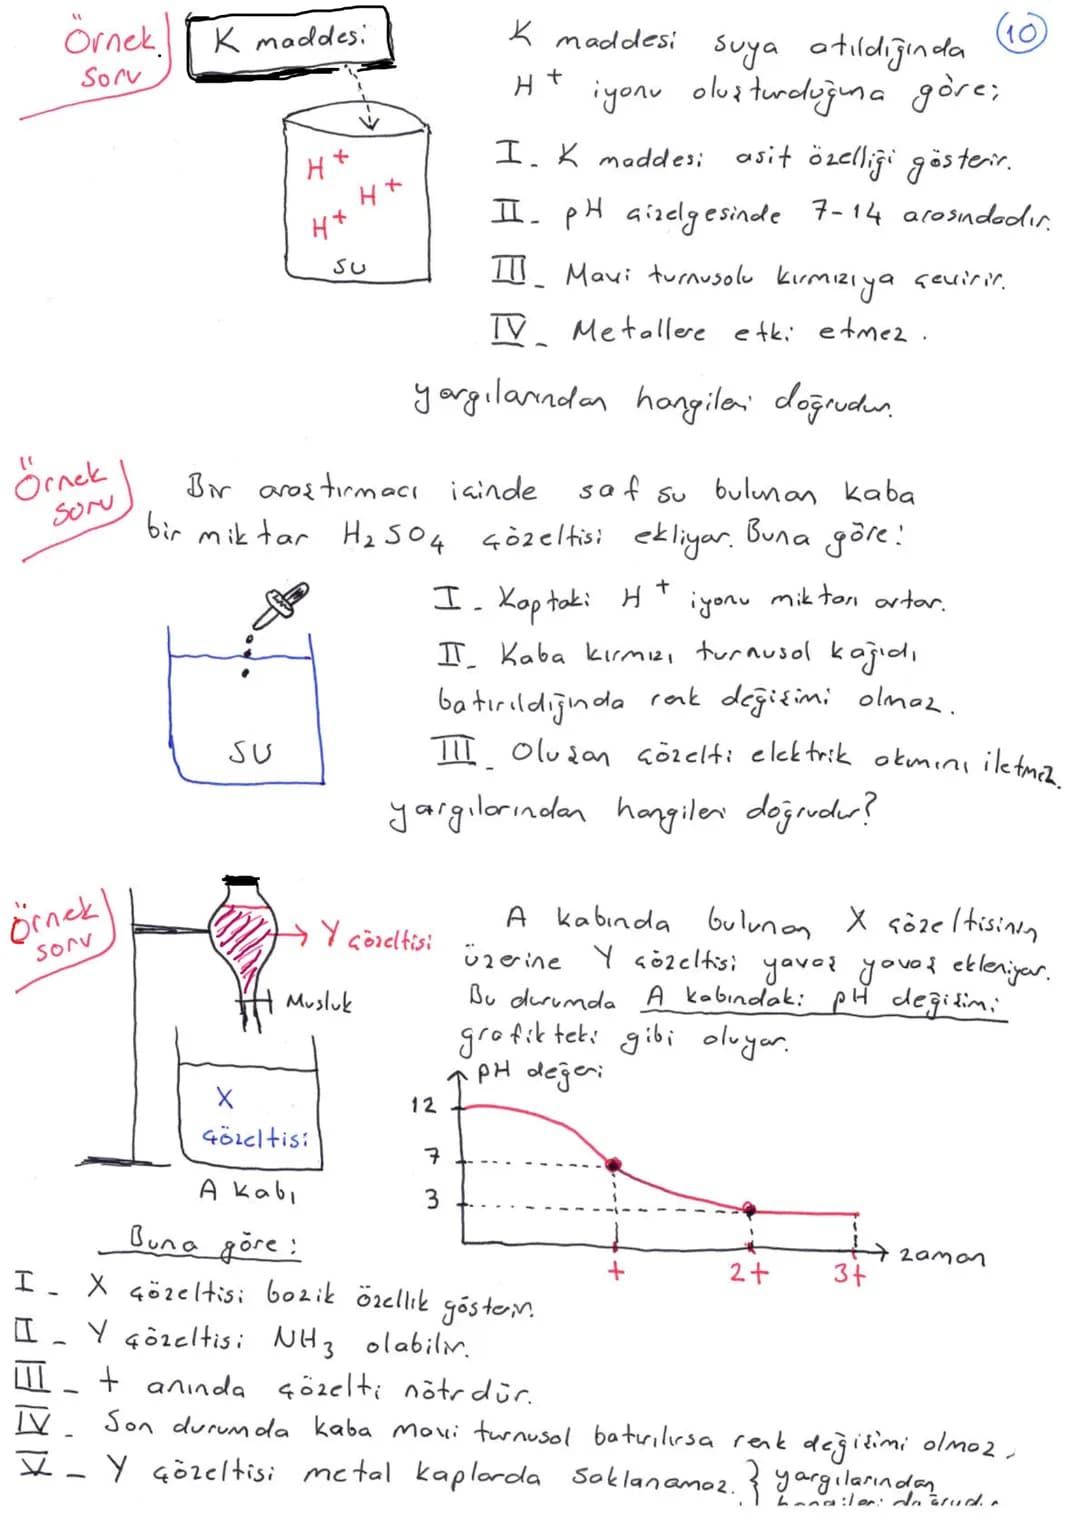 Örnek soru
K maddesi
H+
H+
H+
su
10
K maddesi suya atıldığında
H+ iyonu oluşturduğuna göre;
I. K maddesi asit özelliği gösterir.
II- pH çizelgesinde 7-14 arasındadır.
III- Mavi turnusolu kırmızıya çevirir.
IV- Metallere etki etmez.
yargılarından hangileri doğrudur.
Örnek soru
Bir araştırmacı içinde saf su bulunan kaba
bir miktar H2SO4 çözeltisi ekliyor. Buna göre:
I- Kaptaki H+ iyonu miktarı artar.
II- Kaba kırmızı turnusol kağıdı
batırıldığında renk değişimi olmaz.
III- Oluşan çözelti elektrik akımını iletmez.
yargılarından hangileri doğrudur?
SU
Örnek soru
Y çözeltisi
Musluk
X
çözeltisi
A kabı
A kabında bulunan X çözeltisinin
üzerine Y çözeltisi yavaş yavaş ekleniyor.
Bu durumda A kabındaki pH değişimi
grafikteki gibi oluyor.
pH değeri
12
7
3
t
2t
3t
zaman
Buna göre:
I- X çözeltisi bazik özellik gösterir.
II- Y çözeltisi NH3 olabilir.
III- t anında çözelti nötrdür.
IV- Son durumda kaba mavi turnusol batırılırsa renk değişimi olmaz.
V- Y çözeltisi metal kaplarda saklanamaz. } yargılarından